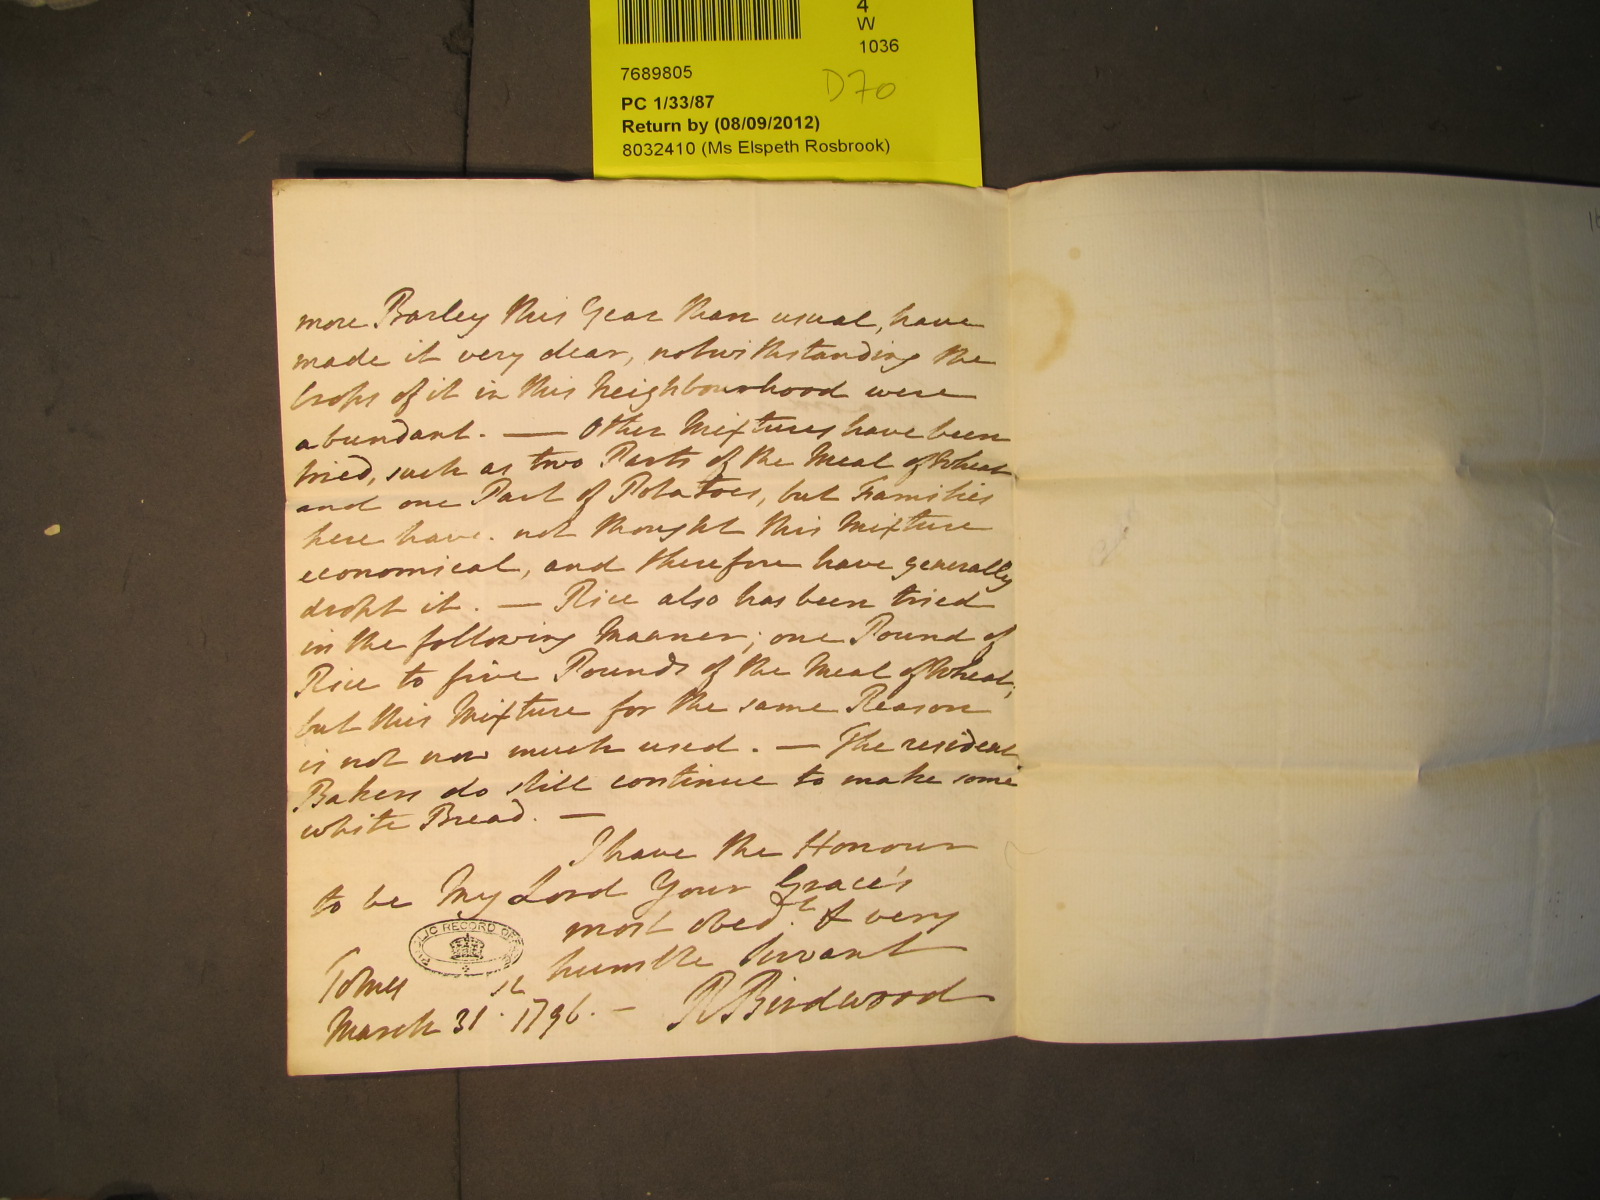 4
W
1036
7689805
D70
PC 1/33/87
Return by (08/09/2012)
8032410 (Ms Elspeth Rosbrook)
more Barley this Year than usual, have
made it very dear, notwithstanding the
Crops of it in this Neighbourhood were
abundant. — Other Mixtures have been
tried, such as two Parts of the Meal of Wheat
and one Part of Potatoes, but Families
here have not thought this Mixture
economical, and therefore have generally
dropt it. — Rice also has been tried
in the following Manner; one Pound of
Rice to five Pounds of the Meal of Wheat;
but this Mixture for the same Reason
is not now much used. — The resident
Bakers do still continue to make some
white Bread. —
I have the Honour
to be My Lord Your Grace's
most obed.t & very
humble Servant
PUBLIC RECORD OFFICE
Totnes
March 31.st 1796. —
R Birdwood